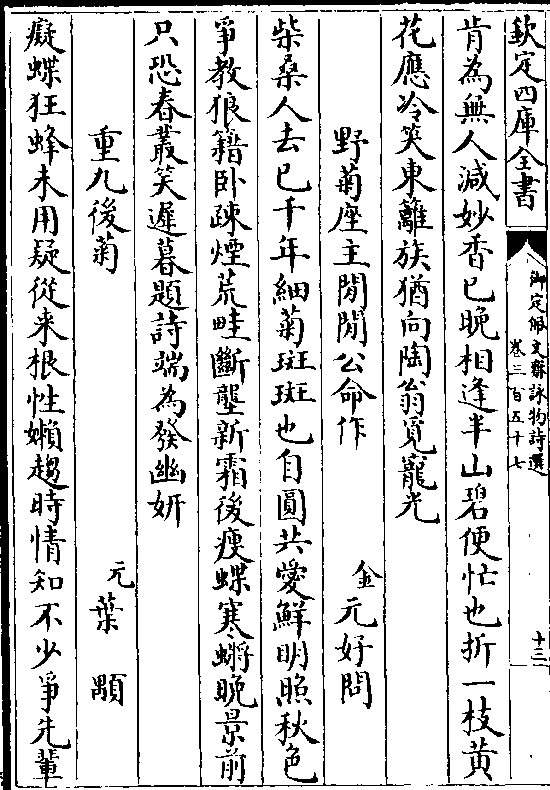 欽定四庫全書
御定佩文齋詠物詩選
卷三百五十七
十三
肯為無人減妙香已晚相逢半山碧便忙也折一枝黄
花應冷笑東籬族猶向陶翁覔寵光
野菊座主閒閒公命作
金元好問
柴桑人去已千年細菊斑斑也自圓共愛鮮明照秋色
爭教狼籍卧疎煙荒畦斷壟新霜後瘦蝶寒螀晚景前
只恐春叢笑遲暮題詩端為發幽妍
重九後菊
元葉顒
癡蝶狂蜂未用疑從来根性嬾趨時情知不少爭先輩